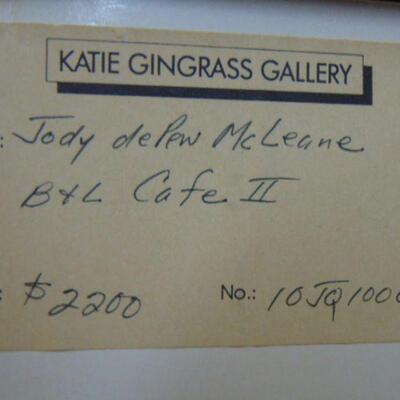 KATIE GINGRASS GALLERY
: Jody dePew McLeane
B+L Cafe II
: $2200 No.: 10JQ1000